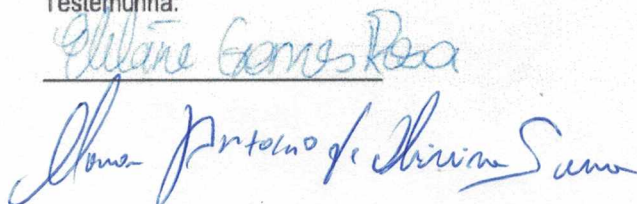 Testemunha:
Elilâne Gomes Rosa
Antonio de Oliveira